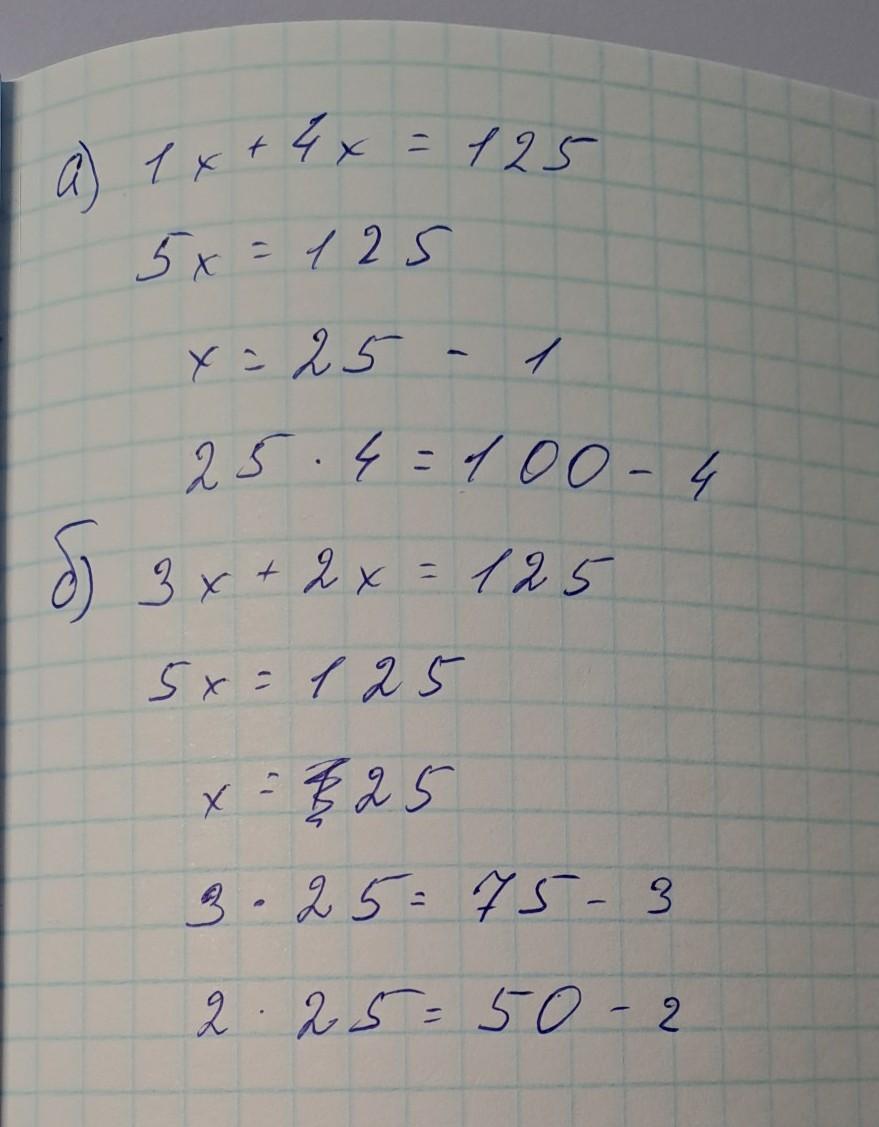 а) 1x + 4x = 125
5x = 125
x = 25 - 1
25 · 4 = 100 - 4
б) 3x + 2x = 125
5x = 125
x = 25
3 · 25 = 75 - 3
2 · 25 = 50 - 2